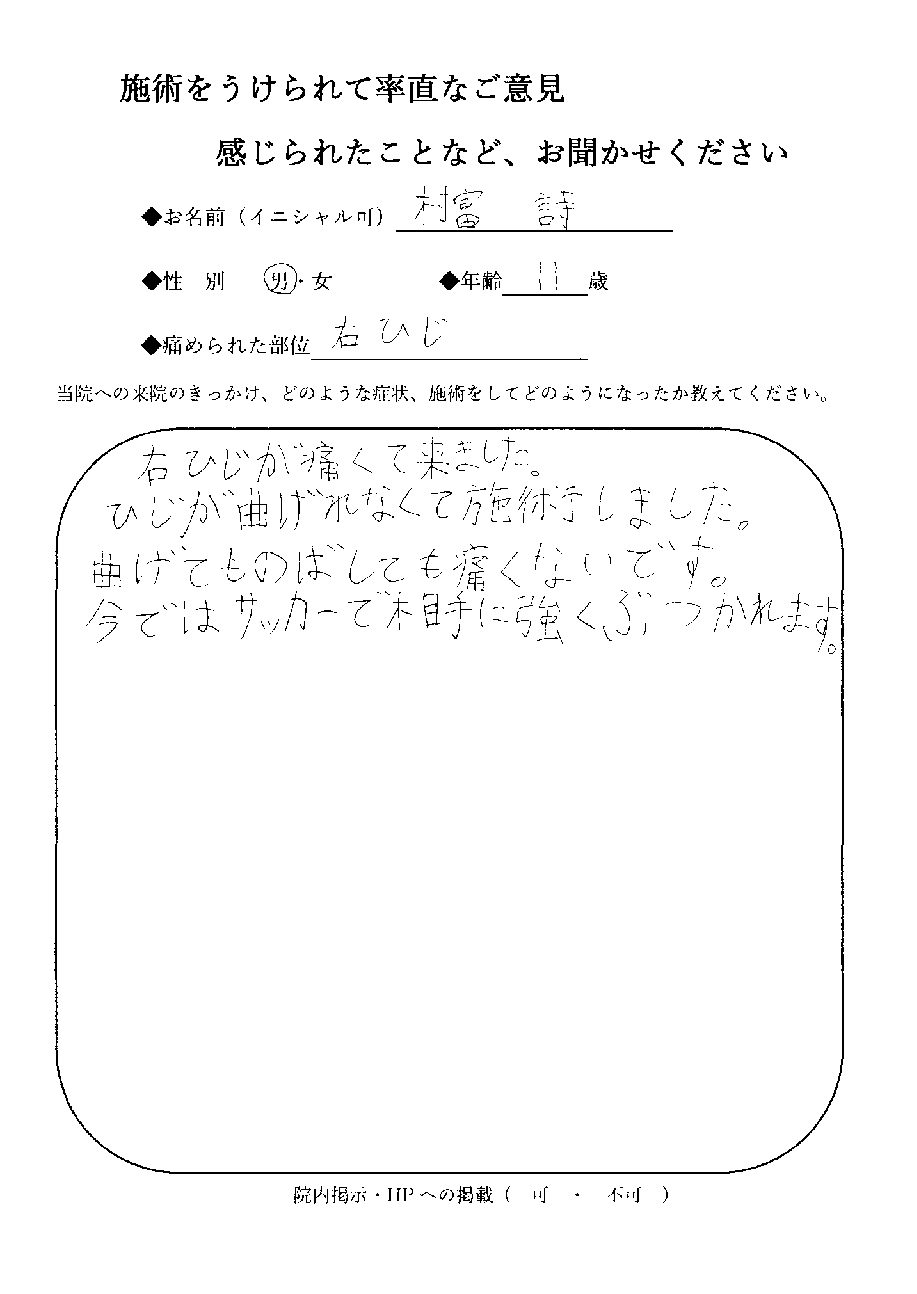 施術をうけられて率直なご意見
感じられたことなど、お聞かせください
◆お名前（イニシャル可） 村富 詩
◆性 別 男・女 ◆年齢 11 歳
◆痛められた部位 右ひじ
当院への来院のきっかけ、どのような症状、施術をしてどのようになったか教えてください。
右ひじが痛くて来ました。
ひじが曲げれなくて施術しました。
曲げてものばしても痛くないです。
今ではサッカーで相手に強くぶつかれます。
院内掲示・HPへの掲載（ 可 ・ 不可 ）